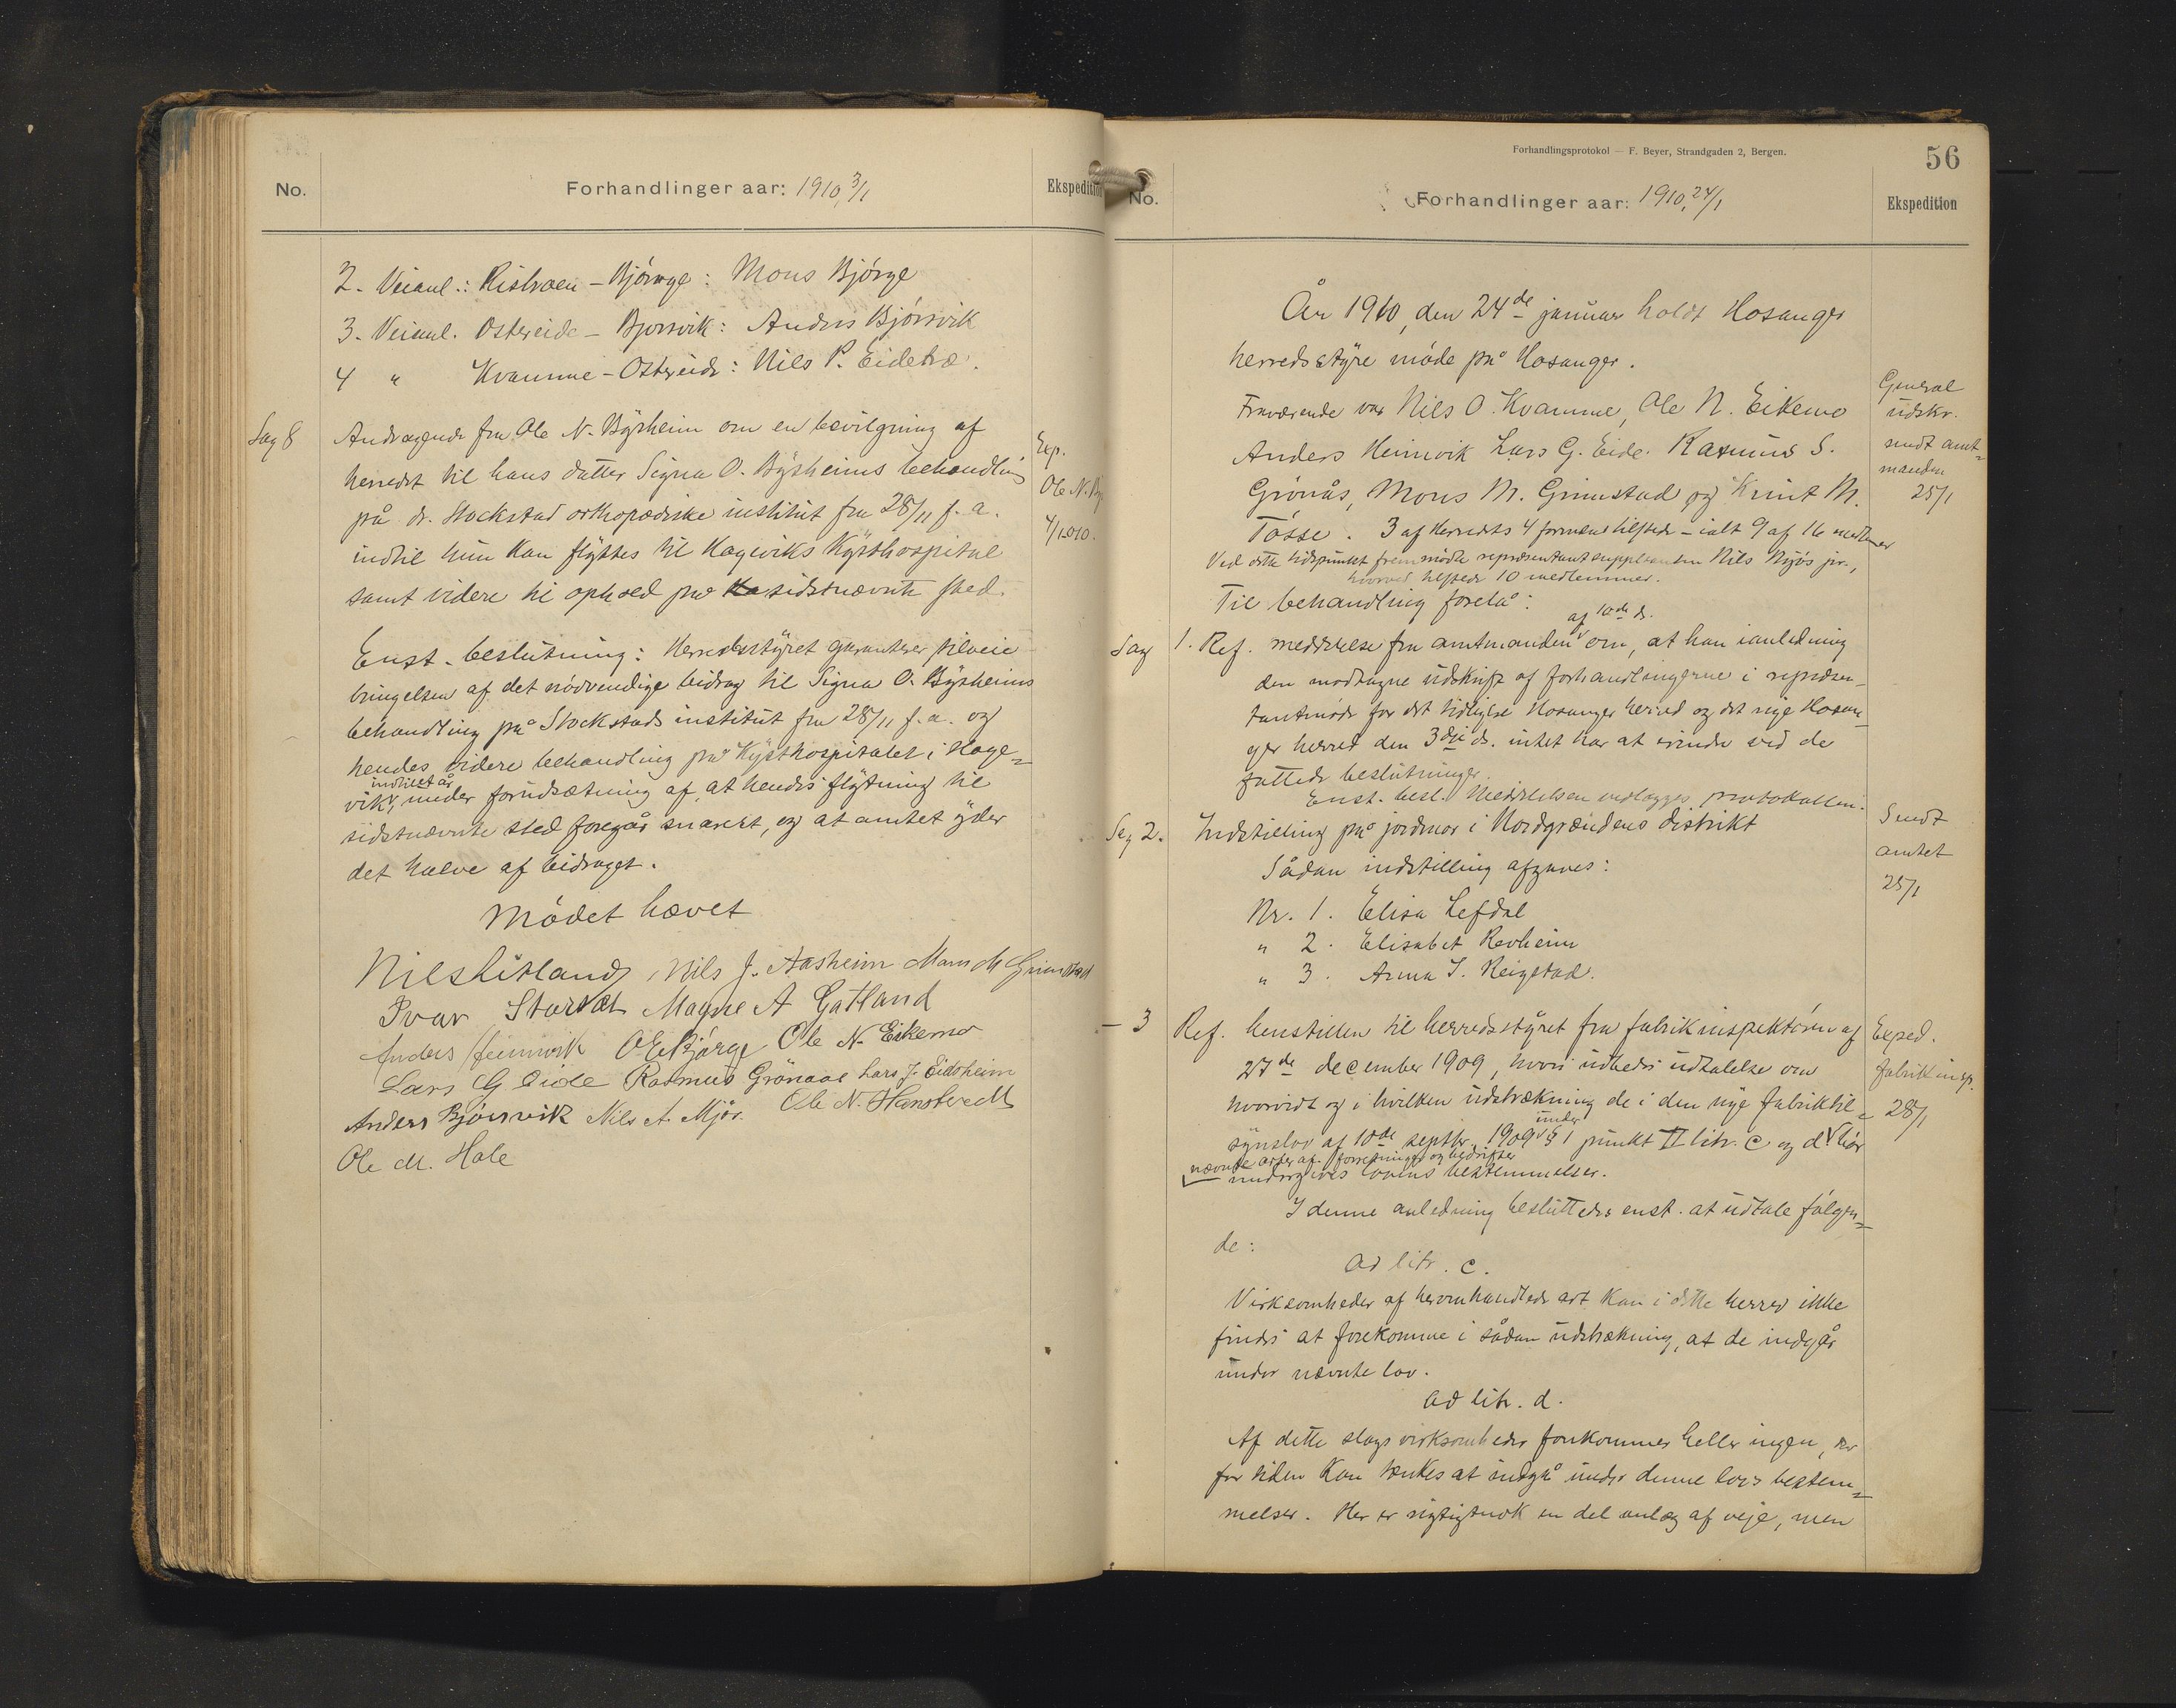 No.
Forhandlinger aar: 1910, 3/1
Ekspedition
2. Veianl.: Ristraen - Bjørge: Mons Bjørge
3. Veianl. Ostereide - Bjorsvik: Anders Bjørsvik
4 " Kvamme - Ostereide: Nils P. Eidetræ.
Sag 8
Andragende fra Ole N. Bysheim om en bevilgning af
herredet til hans datter Signa O. Bysheims behandling
på dr. Stockstad orthopædiske institut fra 28/11 f. a.
indtil hun kan flyttes til Hagevik Kysthospital
samt videre til ophold på sidstnævnte sted.
Exp.
Ole N. By
4/1 010.
Enst. beslutning: Herredsstyret garanterer tilveie
bringelsen af det nødvendige bidrag til Signa O. Bysheims
behandling på Stockstads institut fra 28/11 f. a. og
hendes videre behandling på Kysthospitalet i Hage=
vik, indtil et år under forudsætning af, at hendes flytning til
sidstnævnte sted foregår snarest, og at amtet yder
det halve af bidraget.
Mødet hævet
Nils Litland, Nils J. Aasheim Mons M Grimstad
Ivar Storset Magne A Gatland
Anders Heimvik O E Bjørge Ole N. Eikemo
Lars G Eide Rasmus Grønaas Lars J. Eidsheim
Anders Bjørsvik Nils A. Mjøs. Ole N. Hanstvedt
Ole M. Hole
Forhandlingsprotokol — F. Beyer, Strandgaden 2, Bergen.
56
No.
Forhandlinger aar: 1910, 24/1
Ekspedition
År 1910, den 24de januar holdt Hosanger
herredsstyre møde på Hosanger.
Fraværende var Nils O. Kvamme, Ole N. Eikemo
Anders Heimvik Lars G. Eide. Rasmus S.
Grønås, Mons M. Grimstad og Knut M.
Tøsse. 3 af Herredets 4 formænd tilstede - ialt 9 af 16 medlemmer
Ved dette tidspunkt fremmødte repræsentantsuppleanten Nils Mjøs jr.,
hvorved tilstede 10 medlemmer.
General
udskr.
sendt amt=
manden
25/1
Til behandling forelå:
Sag 1. Ref. meddelelse fra amtmanden af 10de ds. om, at han ianledning
den modtagne udskrift af forhandlingerne i repræsen-
tantmøde for det tidligere Hosanger herred og det nye Hosan-
ger herred den 3die ds. intet har at erindre ved de
fattede beslutninger.
Enst. besl. Meddelelsen vedlægges protokollen.
Sag 2. Indstilling på jordmor i Nordgrændens distrikt
Sådan indstilling afgaves:
Nr. 1. Elisa Lefdal
" 2. Elisabet Revheim
" 3. Anna I. Reigstad.
Sendt
amtet
25/1
- 3 Ref. henstillen til herredsstyret fra fabrikinspektøren af
27de december 1909, hvori udbedes udtalelse om
hvorvidt og i hvilken udstrækning de i den nye fabriktil=
synslov af 10de septbr. 1909 under § 1 punkt II litr. c og d bør
nævnte arter af forretninger og bedrifter
undergives lovens bestemmelser.
Exped.
fabrikinsp.
28/1
I denne anledning besluttedes enst. at udtale følgen=
de:
Ad litr. c.
Virksomheder af heromhandlede art kan i dette herred ikke
findes at forekomme i sådan udstrækning, at de indgår
under nævnte lov.
Ad litr. d.
Af dette slags virksomheder forekommer heller ingen, der
for tiden kan tænkes at indgå under denne lovs bestem=
melser. Her er rigtignok en del anlæg af veje, men